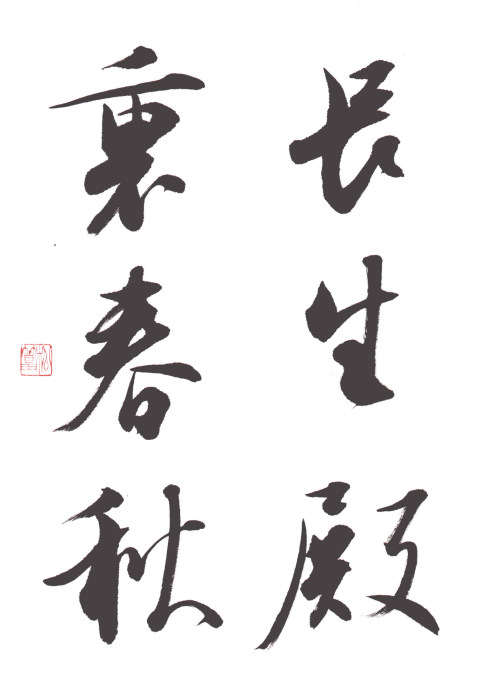 長生殿
裏春秋